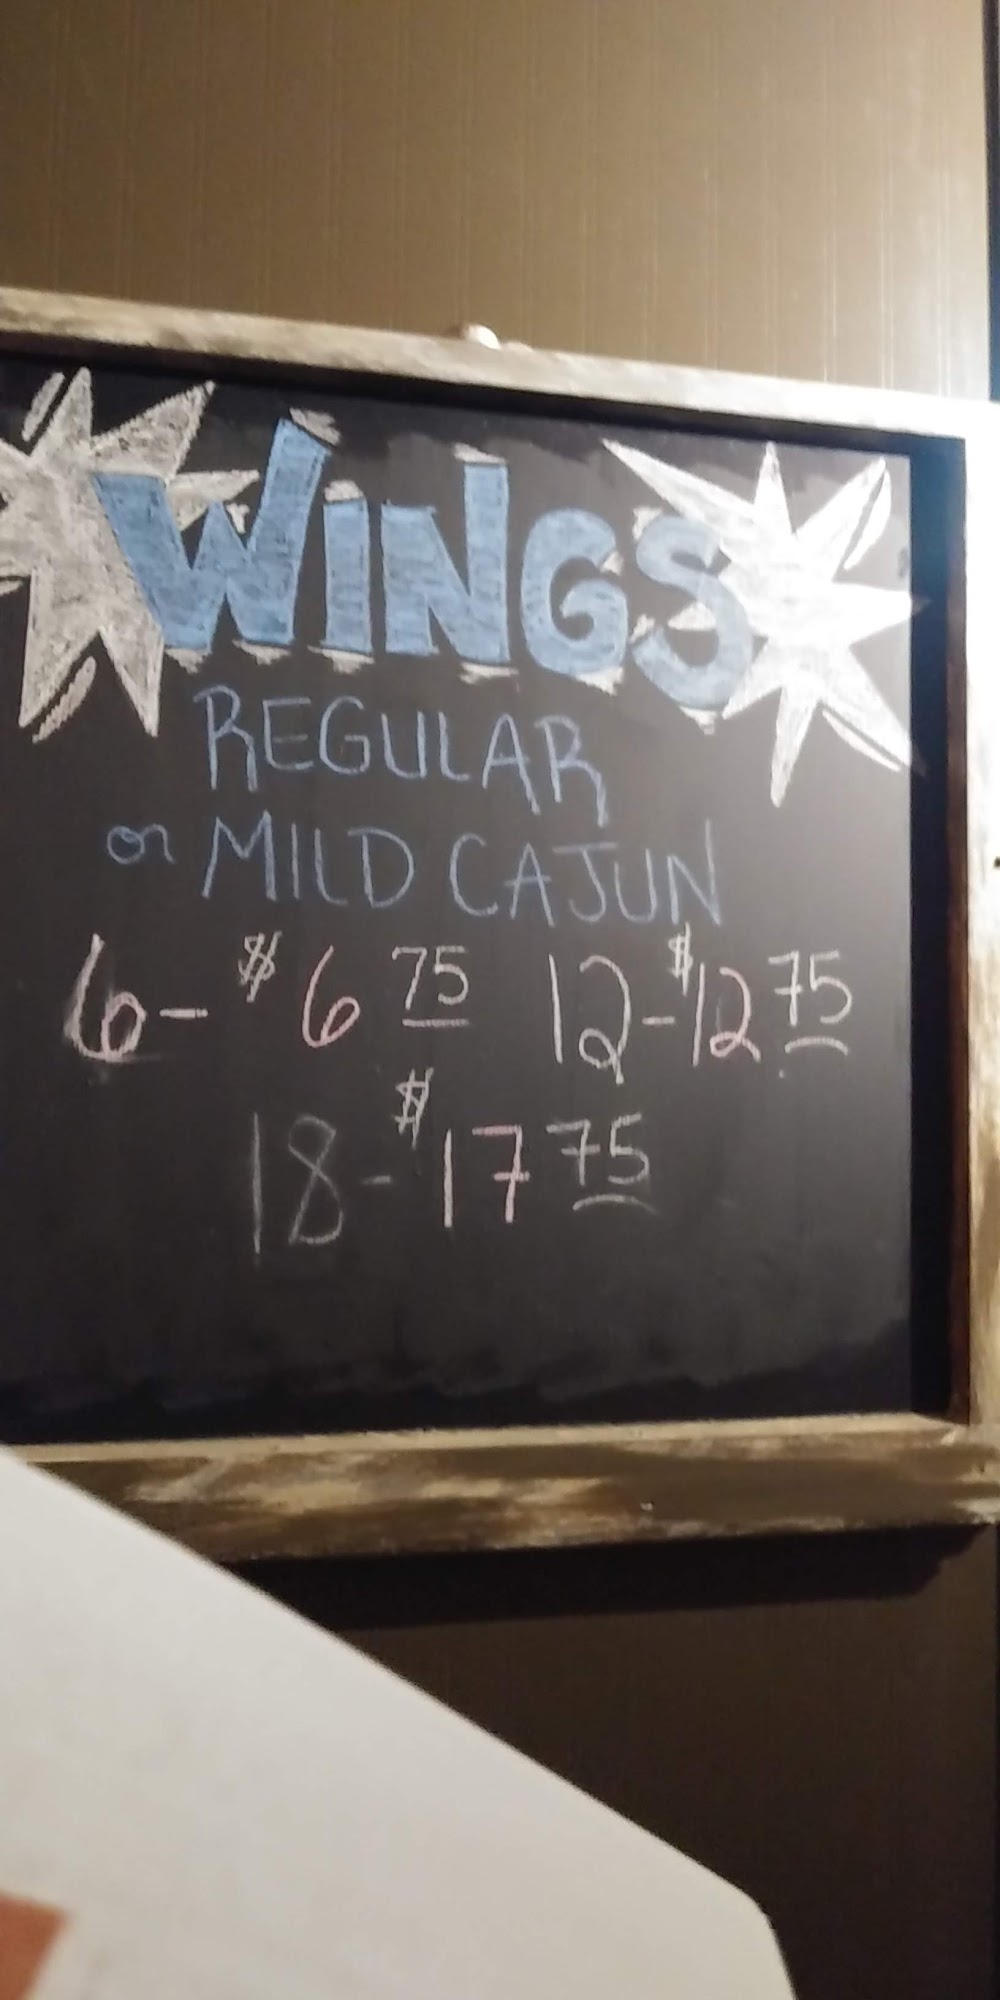 WINGS
REGULAR
or MILD CAJUN
6- $6 75 12-$12 75
18-$17 75